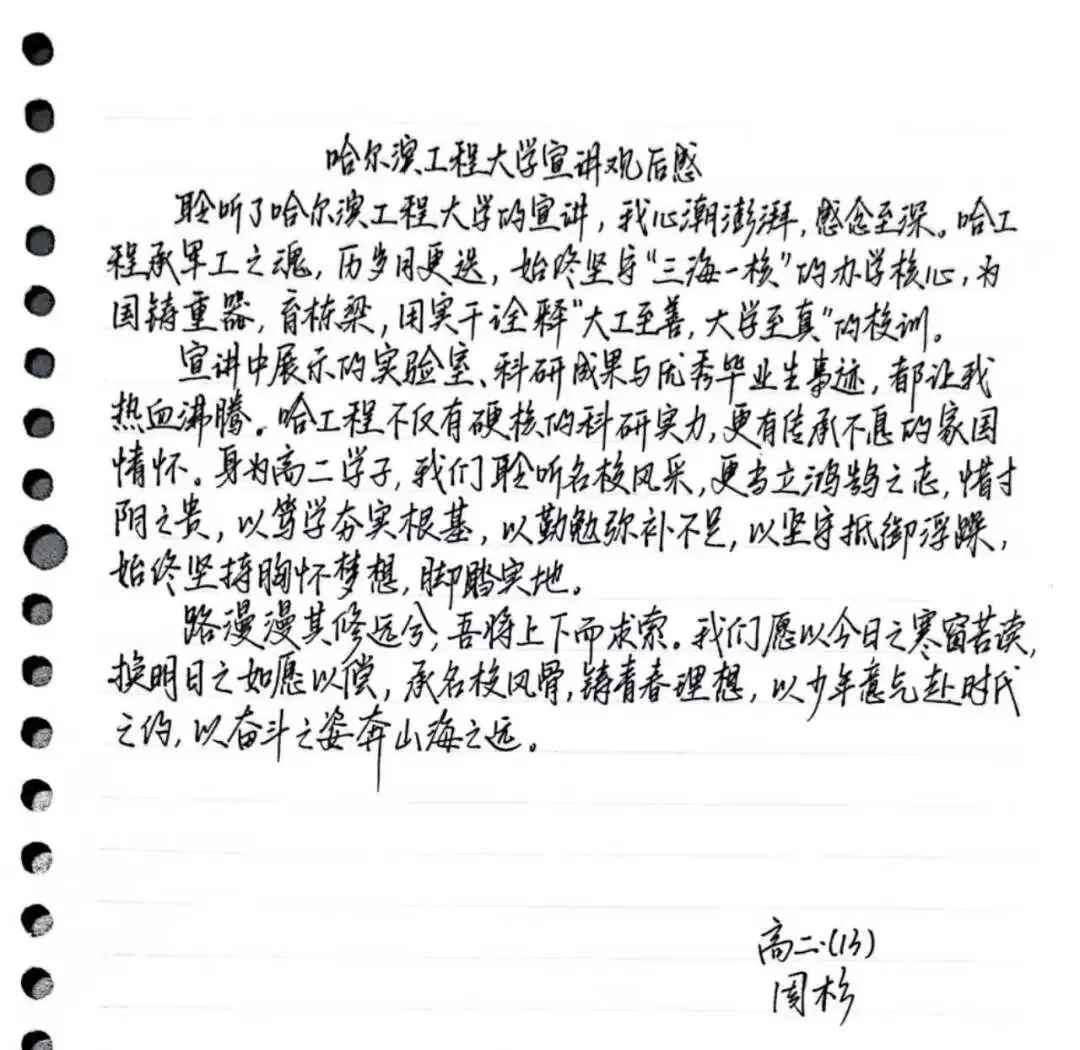 哈尔滨工程大学宣讲观后感
聆听了哈尔滨工程大学的宣讲，我心潮澎湃，感念至深。哈工
程承军工之魂，历岁月更迭，始终坚守“三海一核”的办学核心，为
国铸重器，育栋梁，用实干诠释“大工至善，大学至真”的校训。
宣讲中展示的实验室、科研成果与优秀毕业生事迹，都让我
热血沸腾。哈工程不仅有硬核的科研实力，更有传承不息的家国
情怀。身为高二学子，我们聆听名校风采，更当立鸿鹄之志，惜寸
阴之贵，以笃学夯实根基，以勤勉弥补不足，以坚守抵御浮躁，
始终坚持胸怀梦想，脚踏实地。
路漫漫其修远兮，吾将上下而求索。我们愿以今日之寒窗苦读，
换明日之如愿以偿，承名校风骨，铸青春理想，以少年意气赴时代
之约，以奋斗之姿奔山海之远。
高二（13）
周杉